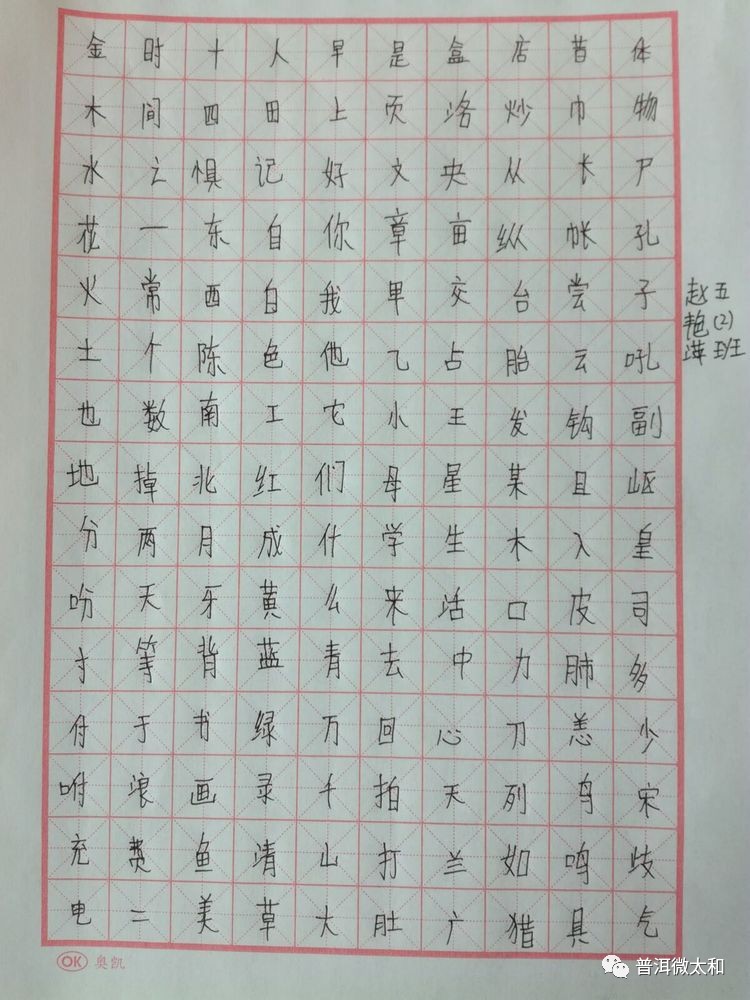 金木水花火土也地分吩寸付咐充电
时间之一常个数掉两天等于浪费二
十四惧东西陈南北月牙背书画鱼美
人田记自白色工红成黄蓝绿录靖草
早上好你我他它们什么青万千山大
是页文章甲乙小母学来去回拍打肚
盒洛央亩交占王星生活中心天兰广
店炒从纵台胎发某木口力刀列如猎
昔巾长帐尝云钩且入皮肺恙鸟鸣具
体物尸孔子吼副岖皇司多少宋歧气
赵艳萍
五(2)班
OK 奥凯
普洱微太和